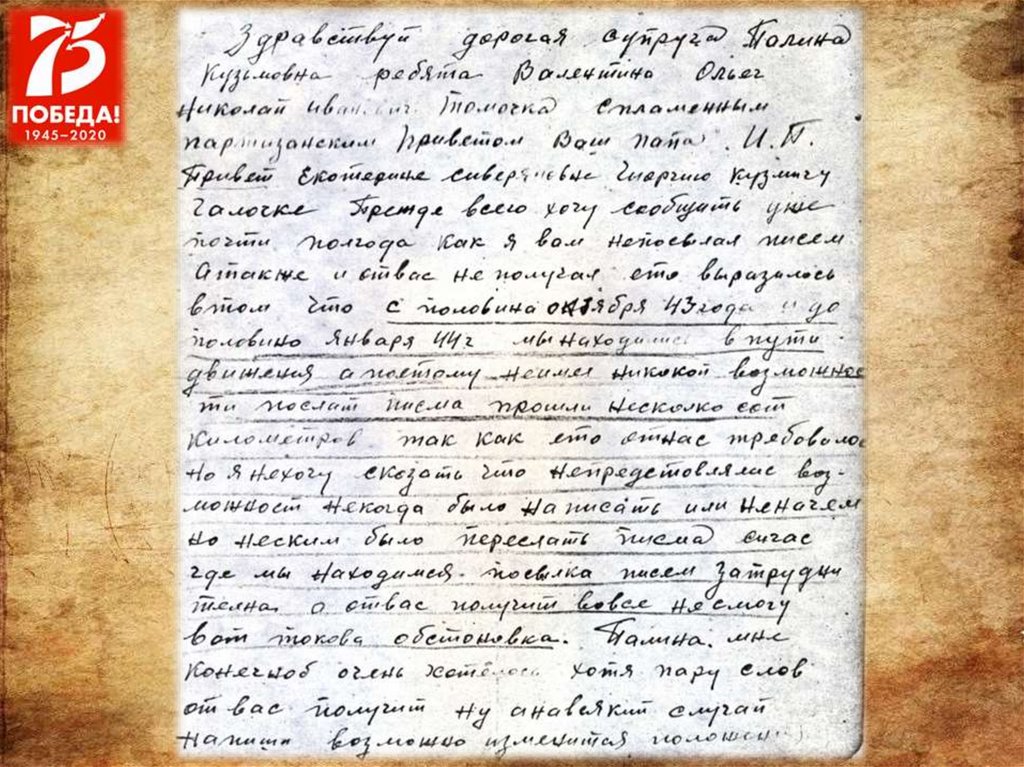 75
ПОБЕДА!
1945–2020
Здравствуй дорогая супруга Полина
Кузьмовна ребята Валентина Ольег
Николай Иванович Томочка спламенным
партизанским Приветом Ваш папа. И.П.
Привет Екотерине сиверяновне Гиоргию Кузмичу
Галочке Прежде всего хочу сообщить уже
почти полгода как я вам непосылал писем
Атакже и отвас не получая ето выразилось
втом что с половина октября 43 года и до
половино января 44 г мы находились в пути
движения а поетому неимел никокой возможнос
ти послат писма прошли несколко сот
километров так как ето отнас требовалос
но я нехочу сказать что непредстовлялис воз-
можност некогда было написать или неначем
но неским было переслать писма сичас
где мы находимся. посылка писем затрудни
телна а отвас получит вовсе несмогу
вот токова обстоновка. Полина. мне
конечноб очень хотелось хотя пару слов
от вас получит ну анавсякий случай
напиши возможно изменится положен